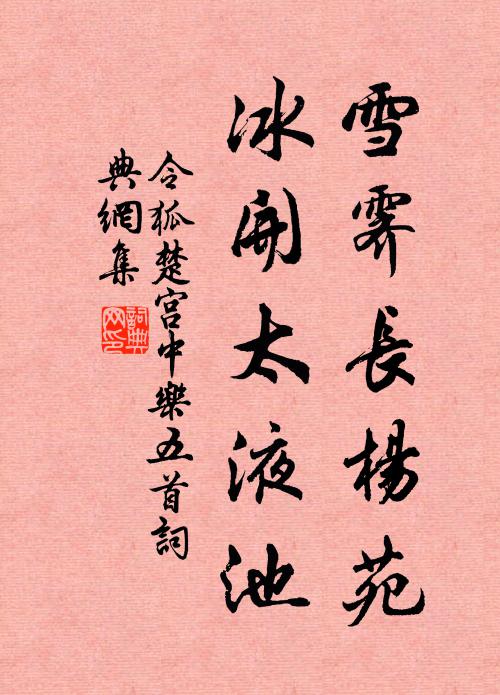 雪霽長楊苑
冰開太液池
令狐楚宮中樂五首詞
典網集
詞典網印